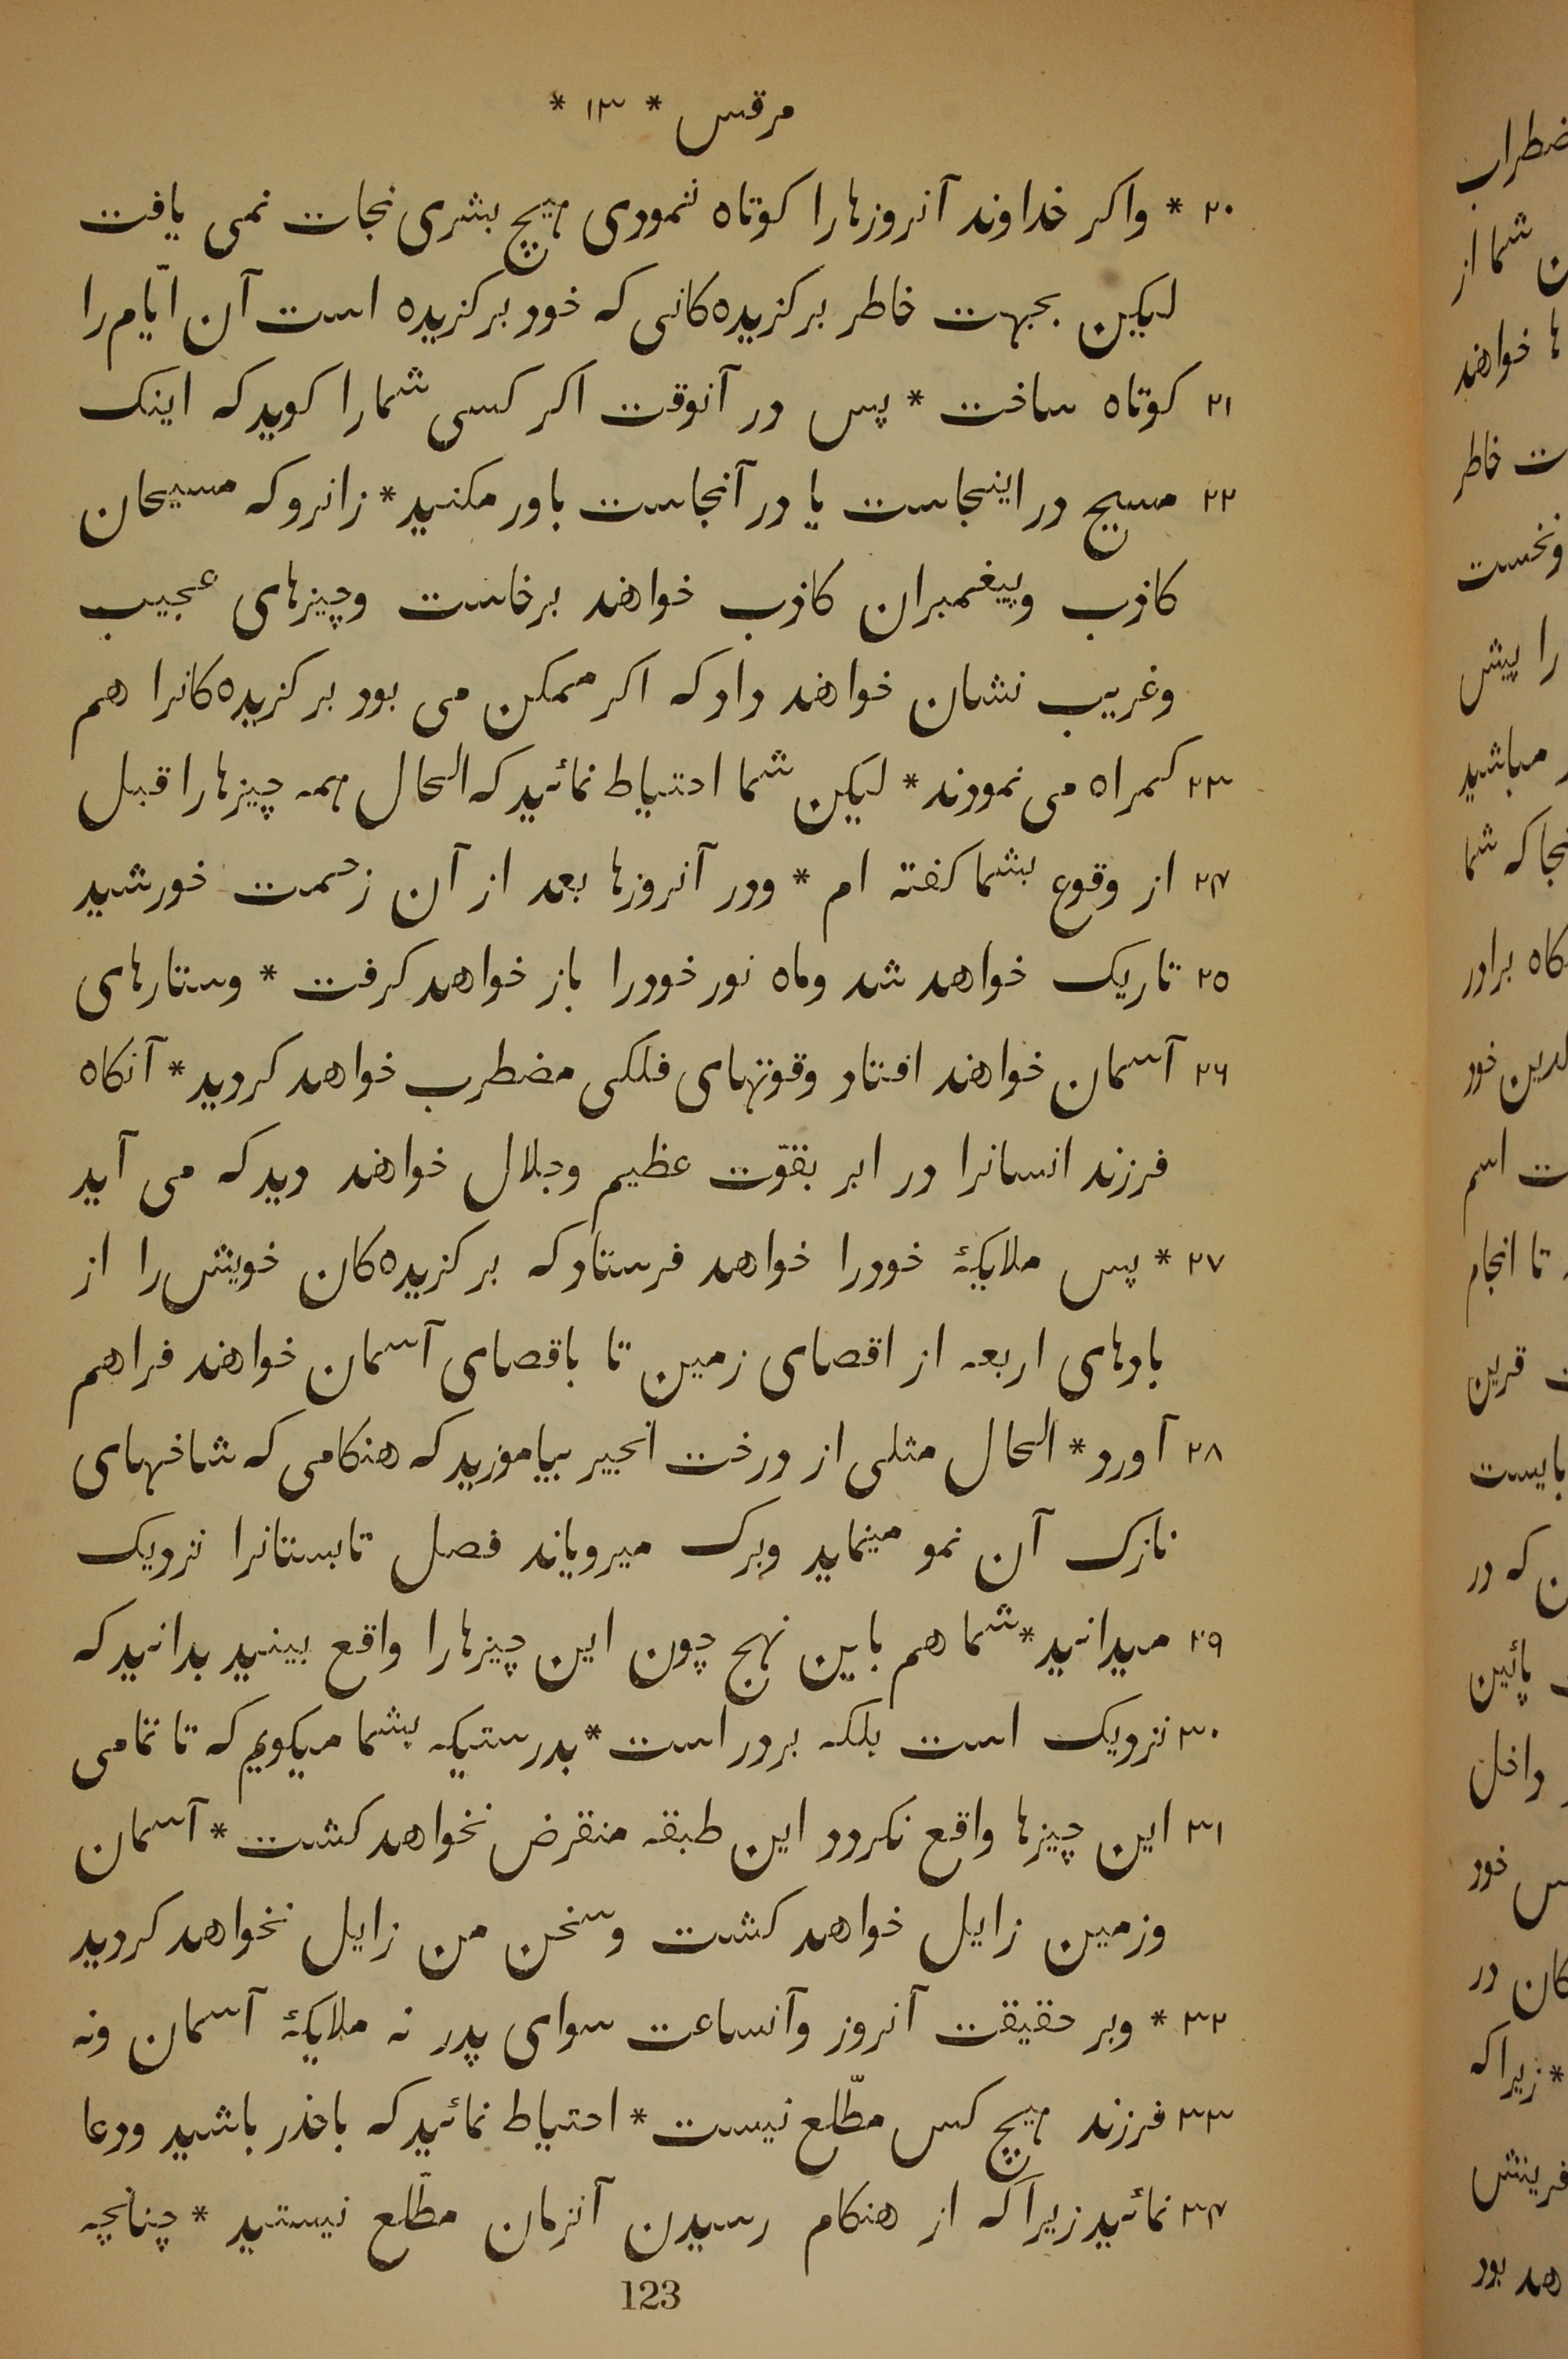 مرقس * ۱۳ *
۲۰ * واکر خداوند آنروزها را کوتاه ننمودی هیچ بشری نجات نمی یافت
لیکن بجهت خاطر برکزیده‌کانی که خود برکزیده است آن ایّام را
۲۱ کوتاه ساخت * پس در آنوقت اکر کسی شما را کوید که اینک
۲۲ مسیح در اینجاست یا در آنجاست باور مکنید * زانرو که مسیحان
کاذب وپیغمبران کاذب خواهند برخاست وچیزهای عجیب
وغریب نشان خواهند داد که اکر ممکن می بود برکزیده‌کانرا هم
۲۳ کمراه می نمودند * لیکن شما احتیاط نمائید که الحال همه چیزها را قبل
۲۴ از وقوع بشما کفته ام * ودر آنروزها بعد از آن زحمت خورشید
۲۵ تاریک خواهد شد وماه نور خود را باز خواهد کرفت * وستارهای
۲۶ آسمان خواهند افتاد وقوتهای فلکی مضطرب خواهد کردید * آنکاه
فرزند انسانرا در ابر بقوّت عظیم وجلال خواهند دید که می آید
۲۷ * پس ملایکهٔ خود را خواهد فرستاد که برکزیده‌کان خویش را از
بادهای اربعه از اقصای زمین تا باقصای آسمان خواهند فراهم
۲۸ آورد * الحال مثلی از درخت انجیر بیاموزید که هنکامی که شاخهای
نازک آن نمو مینماید وبرک میرویاند فصل تابستانرا نزدیک
۲۹ میدانید * شما هم باین نهج چون این چیزها را واقع بینید بدانید که
۳۰ نزدیک است بلکه بر در است * بدرستیکه بشما میکویم که تا تمامی
۳۱ این چیزها واقع نکردد این طبقه منقرض نخواهد کشت * آسمان
وزمین زایل خواهد کشت وسخن من زایل نخواهد کردید
۳۲ * وبر حقیقت آنروز وآنساعت سوای پدر نه ملایکهٔ آسمان ونه
۳۳ فرزند هیچ کس مطّلع نیست * احتیاط نمائید که باحذر باشید ودعا
۳۴ نمائید زیرا که از هنکام رسیدن آنزمان مطّلع نیستید * چنانچه
123
ن شما از
ها خواهند
ت خاطر
ونخست
را پیش
مباشید
که شما
برادر
خود
ت اسم
تا انجام
قرین
بایست
که در
پائین
داخل
خود
کان در
* زیرا که
هد بود